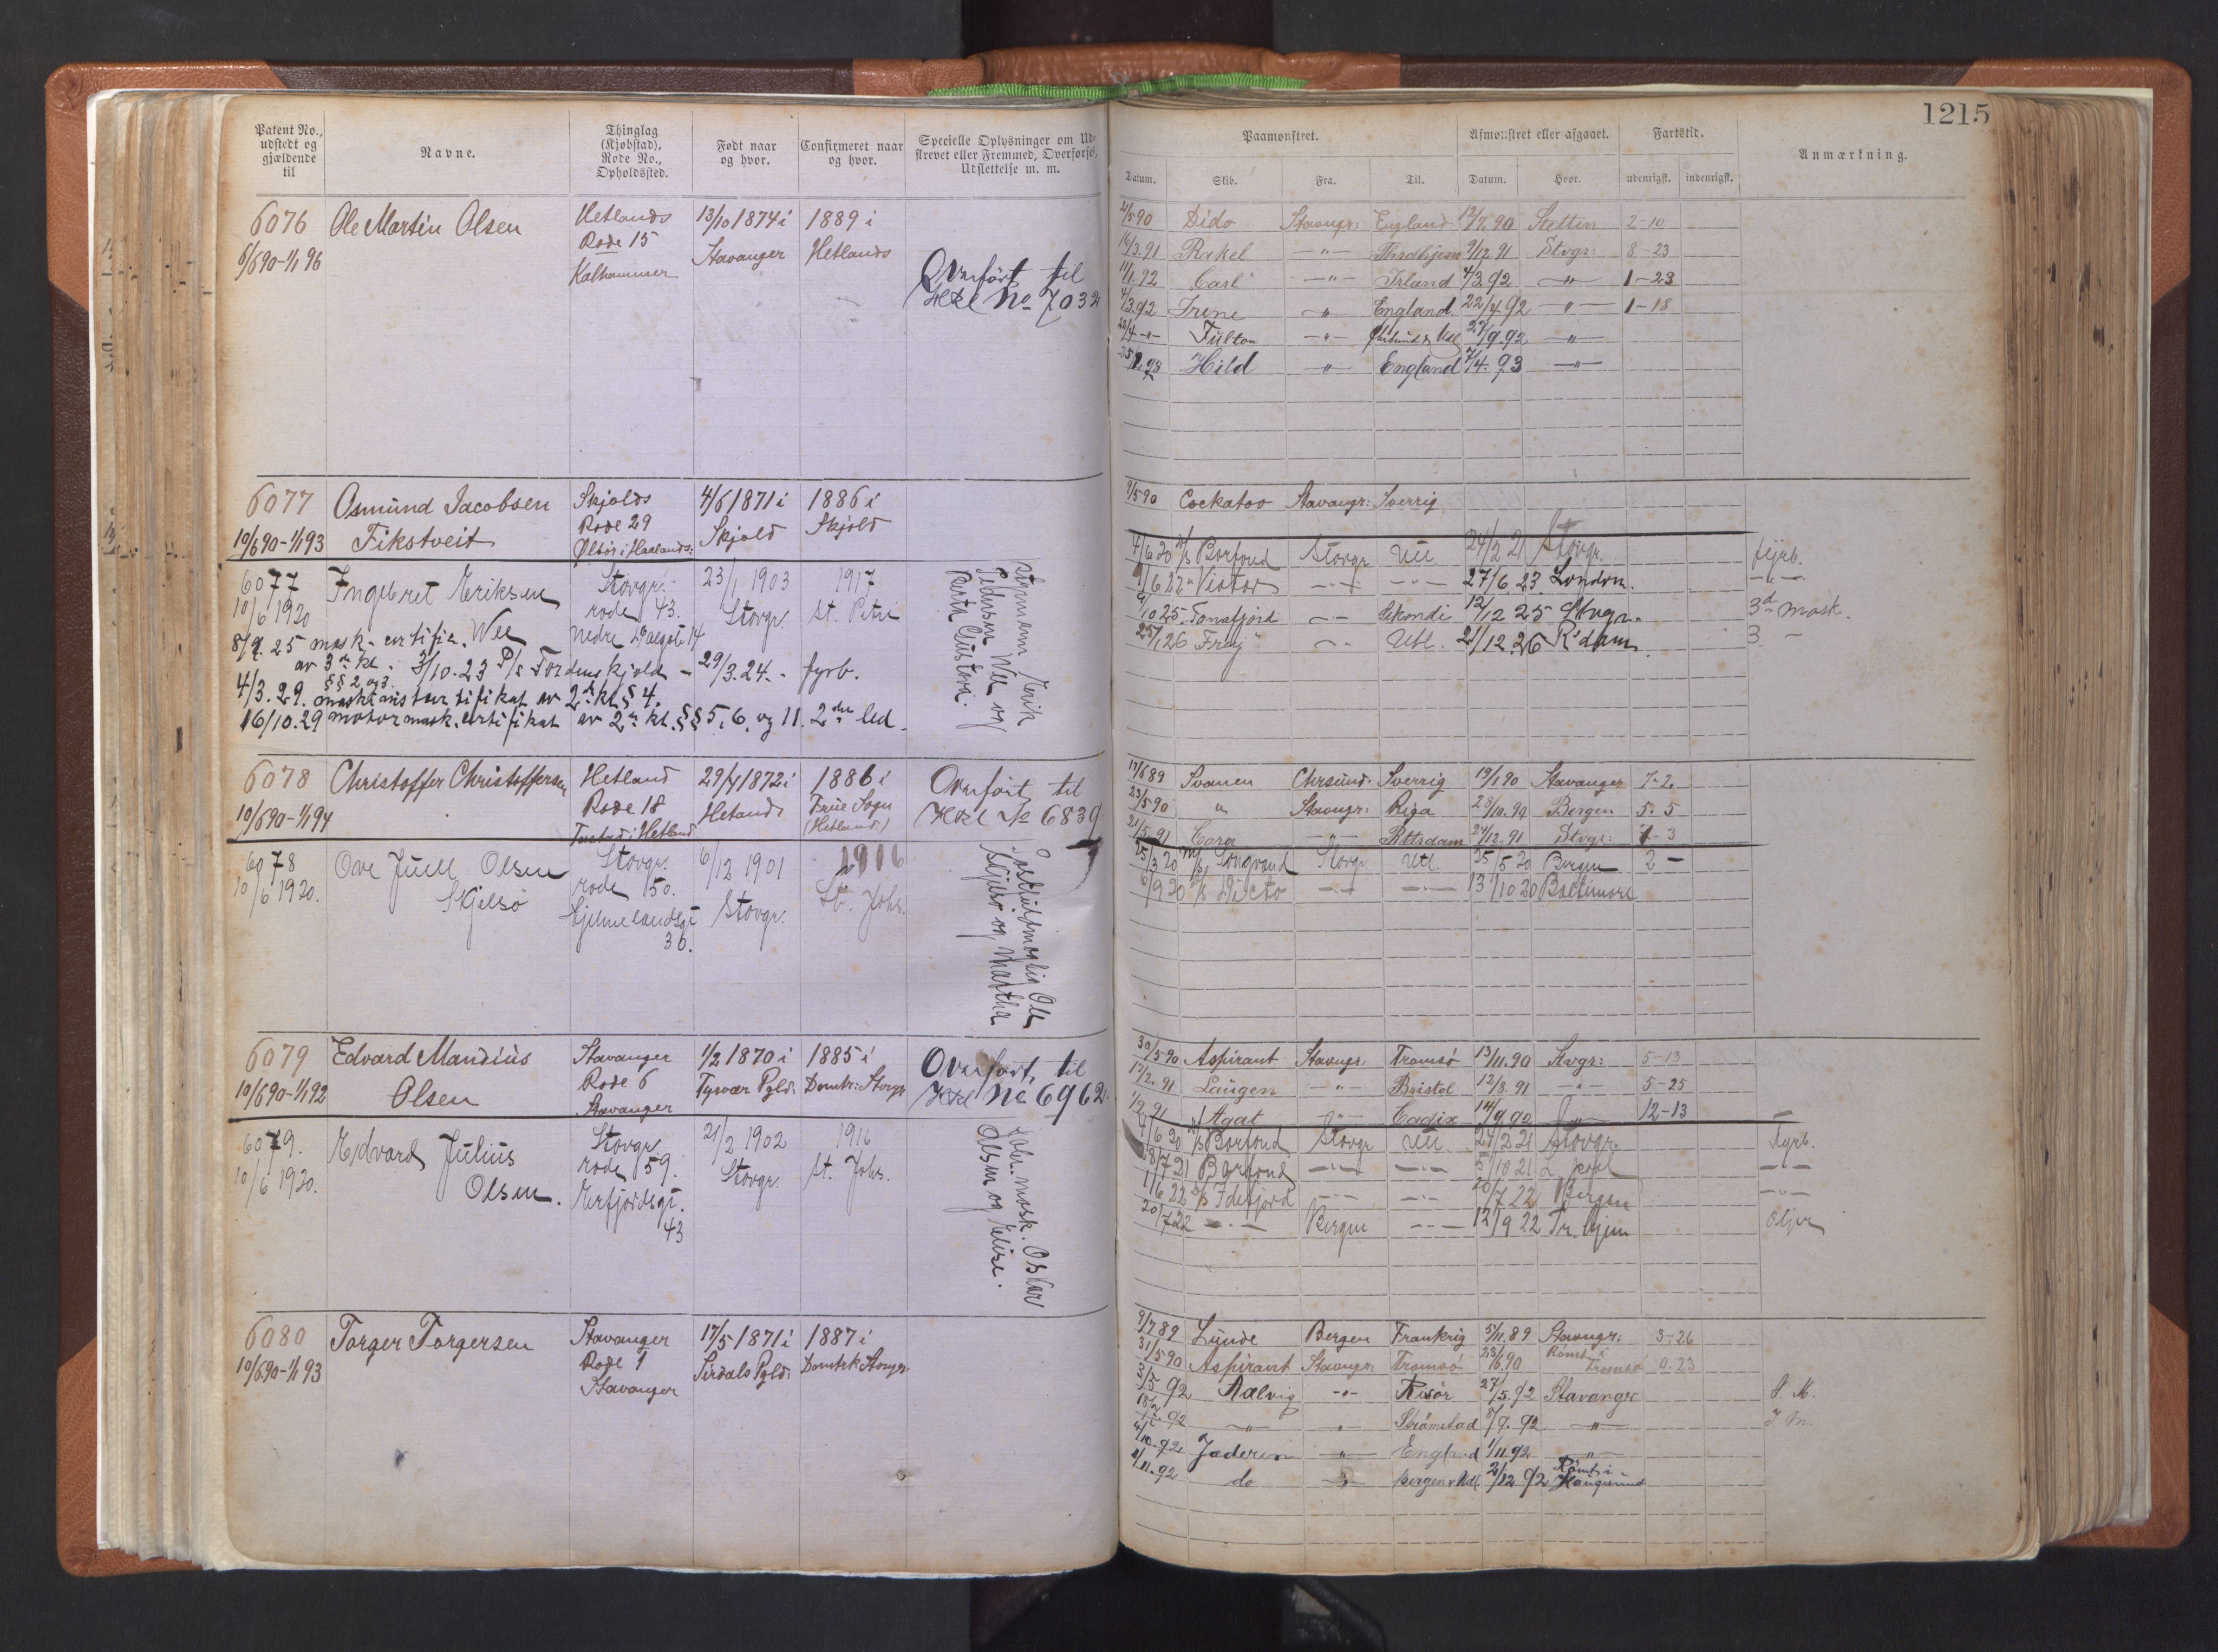 1215
Patent No., udstedt og gjældende til
Navne.
Thinglag (Kjøbstad), Rode No., Opholdssted.
Født naar og hvor.
Confirmeret naar og hvor.
Specielle Oplysninger om Udskrevet eller Fremmed, Overførsel, Udslettelse m. m.
Paamønstret.
Datum. Skib. Fra. Til.
Afmønstret eller afgaaet.
Datum. Hvor.
Fartstid.
udenrigsk. indenrigsk.
Anmærkning.
6076 Ole Martin Olsen Hetlands 13/10 1874 i 1889 i
6/6 90-1/1 96 Rode 15 Stavanger Hetlands
Kalhammer
Overført til
No 7032
2/5 90 Dido Stavngr: England 12/7. 90 Stettin 2-10
16/3. 91 Rakel -"- 9/12 91 Stvgr: 8-23
11/1. 92 Carl -"- Island 4/3. 92 -"- 1-23
4/3. 92 Irene -"- England 22/4. 92 -"- 1-18
22/4 -"- Fulton -"- 27/9. 92 -"-
Hild -"- England 7/4. 93 -"-
6077 Osmund Jacobsen Skjolds 4/6 1871 i 1886 i
10/6 90-1/1 93 Fikstveit Rode 29 Skjold Skjold
Ølbør i Haalands:
9/5 90 Cockatoo Stavangr: Sverrig
6077 Ingebret Eriksen Stavgr. 23/1 1903 1917
10/6 1920 Wee rode 43. Stavgr. St. Petri
Nedre 14
8/9. 25 mask. certifik.
av 3die kl. 3/10-23 D/S Tordenskjold - 29/3. 24. - fyrb.
§§ 2 og 3.
4/3. 29. maskinistcertifikat av 2. kl. § 4.
16/10. 29 motormask. certifikat av 2. kl. §§ 5, 6, og 11. 2det led.
Styrmann Erik
Pedersen Wee og
Berta Gustava.
4/6 20 D/S Borfond Stavgr Utl 24/2 21 Stavgr. fyrb.
/6 22 " Victor -"- -"- 27/6. 23. London. -"-
9/10 25. Tanafjord -"- 12/12 25 Stvgr. 3d mask.
25/1 26 Frey -"- Utl. 21/12. 26 R'dam. 3 -
6078 Christoffer Christoffersen Hetland 29/4 1872 i 1886 i
10/6 90-1/1 94 Rode 18 Hetlands Frue Sogn
Tastad i Hetland (Hetland.)
Overført til
No 6839
17/6 89 Svanen Chrsund. Sverrig 19/1 90 Stavanger 7-2.
23/5 90 " Stavngr: Riga 28/10. 90 Bergen 5-5
21/5 91 Cora -"- 24/12. 91 Stvgr: 7-3
6078 Ove Juell Olsen Stavgr. 6/12 1901 1916
10/6 1920. Skjelsø rode 50. Stavgr. St. Johs.
Hjelmelandsgt
36.
Ole
Skjelsø og Martha
25/3 20 Stavgr. Utl 25/5 20 Bergen 2 -
6/9 20 D/S Dicto -"- -"- 13/10 20 Baltimore
6079 Edvard Mandius Stavanger 1/2 1870 i 1885 i
10/6 90-1/1 92 Olsen Rode 6 Tysvær Pgld: Domk: Stavgr
Stavanger
Overført til
No 6962
30/5 90 Aspirant Stavngr: Tromsø 13/11. 90 Stvgr: 5-13
17/2. 91 Laugen -"- Bristol 12/8. 91 -"- 5-25
1/9 91 Agat -"- Cadix 14/9 92 -"- 12-13
6079. Edvard Julius Stavgr. 21/2 1902 1916
10/6 1920. Olsen. rode 59. Stavgr. St. Johs.
Erfjordsgt.
43
mask. Oskar
Olsen og Elise.
4/6 20 D/S Borfond Stavgr Utl. 24/2 21 Stavgr. Fyrb.
18/7 21 Borfond -"- -"- 5/10 21 L.pool -"-
1/6 22 D/S Idefjord -"- -"- 20/7 22 Bergen -"-
20/7 22 -"- Bergen -"- 12/9 22 Tr.hjem Oljer
6080 Torger Torgersen Stavanger 17/5 1871 i 1887 i
10/6 90-1/1 93 Rode 1 Sirdals Pgld: Domk Stavgr
Stavanger
9/7 89 Lunde Bergen Frankrig 5/11. 89 Stavngr: 3-26
31/5 90 Aspirant Stavngr: Tromsø 23/6. 90 Rømt i Tromsø 0-23
3/5 92 Aalvig -"- Risør 27/5. 92 Stavangr
-"- " Strömstad 8/9. 92 -"-
4/10-92 Jæderen -" England 1/11. 92 -"-
2/11-92 do -"- Bergen & Utl. 2/12 92 Rømt i Haugesund